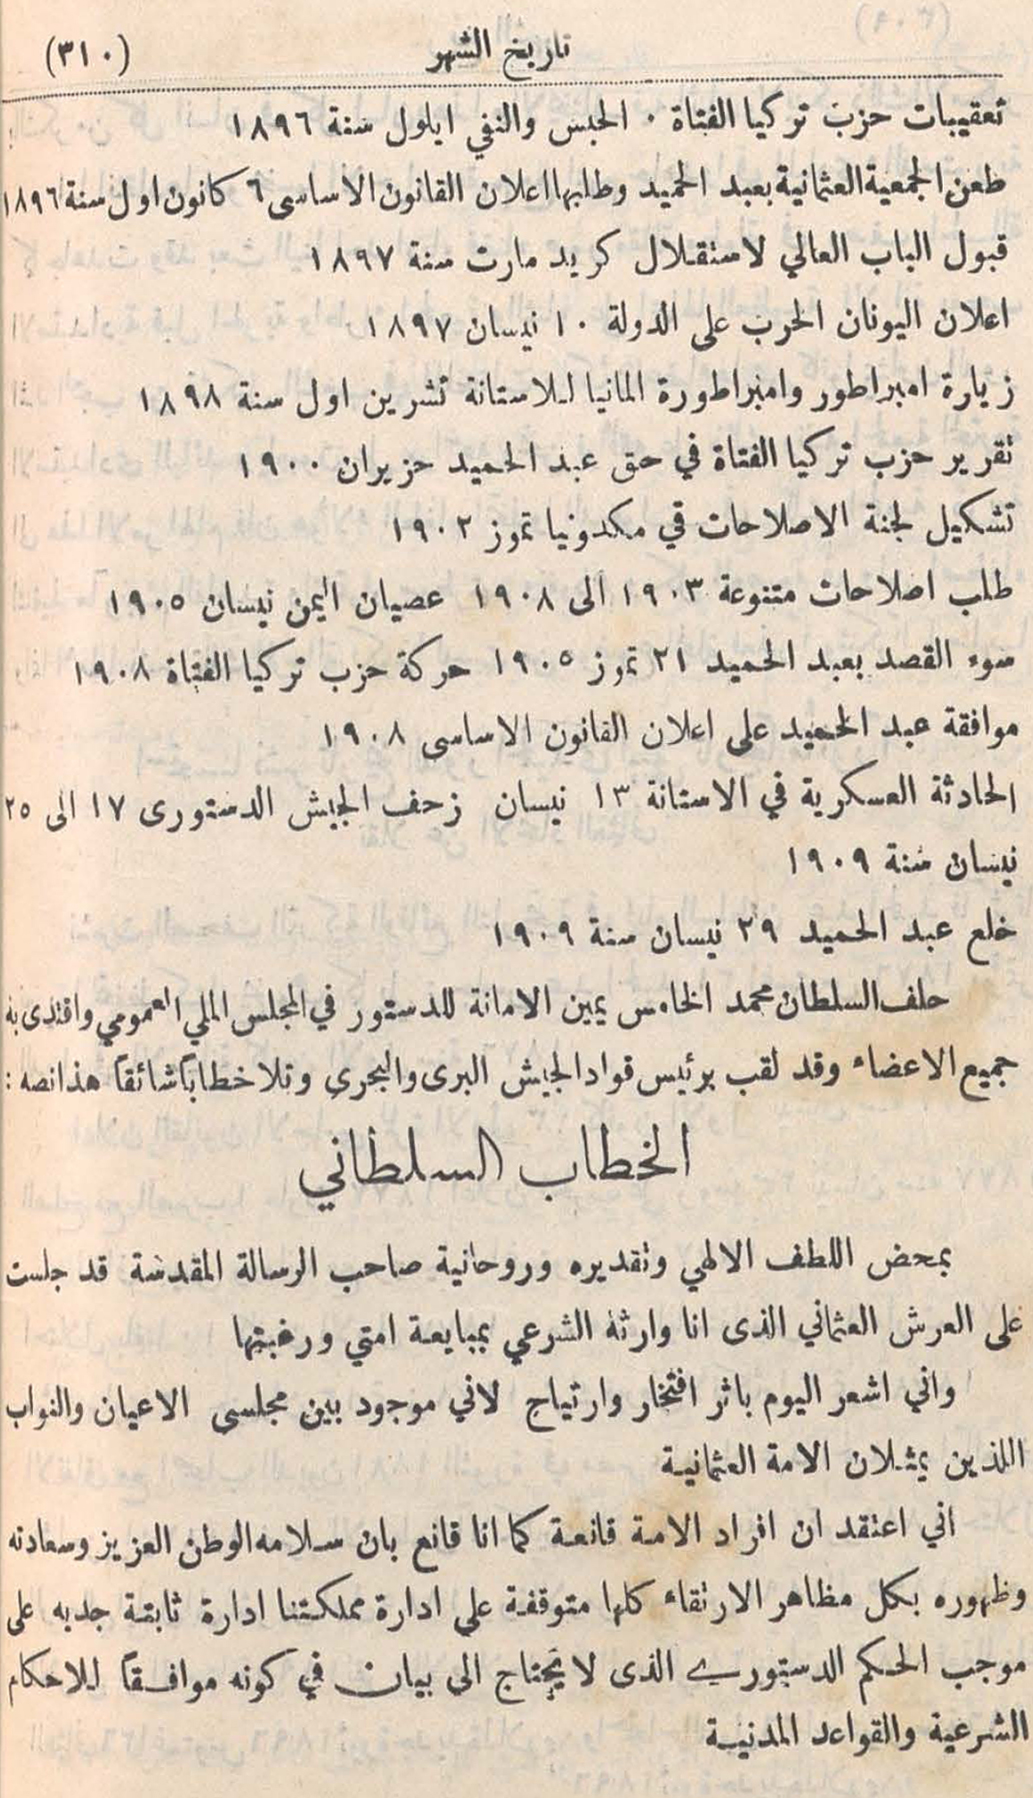 تاريخ الشهر (٣١٠)
تعقيبات حزب تركيا الفتاة ٠ الحبس والنفي ايلول سنة ١٨٩٦
طعن الجمعية العثمانية بعبد الحميد وطلبها اعلان القانون الاساسى ٦ كانون اول سنة ١٨٩٦
قبول الباب العالي لاستقلال كريد مارت سنة ١٨٩٧
اعلان اليونان الحرب على الدولة ١٠ نيسان ١٨٩٧
زيارة امبراطور وامبراطورة المانيا للاستانة تشرين اول سنة ١٨٩٨
تقرير حزب تركيا الفتاة في حق عبد الحميد حزيران ١٩٠٠
تشكيل لجنة الاصلاحات في مكدونيا تموز ١٩٠٢
طلب اصلاحات متنوعة ١٩٠٣ الى ١٩٠٨ عصيان اليمن نيسان ١٩٠٥
سوء القصد بعبد الحميد ٢١ تموز ١٩٠٥ حركة حزب تركيا الفتاة ١٩٠٨
موافقة عبد الحميد على اعلان القانون الاساسى ١٩٠٨
الحادثة العسكرية في الاستانة ١٣ نيسان زحف الجيش الدستورى ١٧ الى ٢٥
نيسان سنة ١٩٠٩
خلع عبد الحميد ٢٩ نيسان سنة ١٩٠٩
حلف السلطان محمد الخامس يمين الامانة للدستور في المجلس الملي العمومي واقتدى به
جميع الاعضاء وقد لقب برئيس قواد الجيش البرى والبحرى وتلا خطاباً شائقاً هذا نصه :
الخطاب السلطاني
بمحض اللطف الالهي وتقديره وروحانية صاحب الرسالة المقدسة قد جلست
على العرش العثماني الذى انا وارثة الشرعي بمبايعة امتي ورغبتها
واني اشعر اليوم باثر افتخار وارتياح لاني موجود بين مجلسى الاعيان والنواب
اللذين يمثلان الامة العثمانية
اني اعتقد ان افراد الامة قانعة كما انا قانع بان سلامه الوطن العزيز وسعادته
وظهوره بكل مظاهر الارتقاء كلها متوقفة على ادارة مملكتنا ادارة ثابتة جديه على
موجب الحكم الدستورى الذى لا يحتاج الى بيان في كونه موافقاً للاحكام
الشرعية والقواعد المدنية